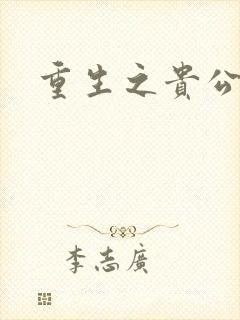 重生之貴公
李志廣